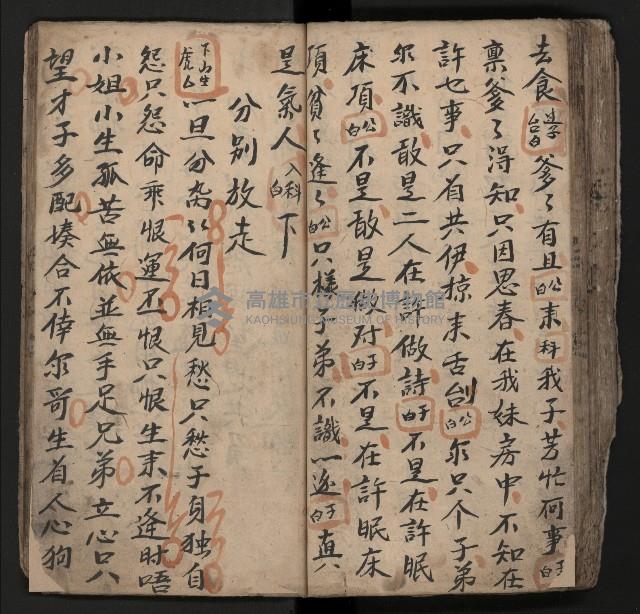 去食 爹〻有且 公白 耒 科 我子芳忙何事 子白
稟爹〻得知只因思春在我妹房中不知在
許乜事只首共伊椋耒舌刣 公白 尔只个子弟
尔不識敢是二人在許做詩 子白 不是在許眠
床項 公白 不是敢是做対 子白 不是在許眠床
項貧〻逢〻 公白 只樣子弟不識一逃 子白 真〻
是氣人 入科白 下
分別放走
下山生虎厶 一旦分离〻何日相見愁只愁子身独自
怨只怨命乖恨運丕恨只恨生耒不逢时唔
小姐小生孤苦無依並無手足兄弟立心只〻
望才子多配堜合不倖尔哥生首人心狗
高雄市立歷史博物館
KAOHSIUNG MUSEUM OF HISTORY